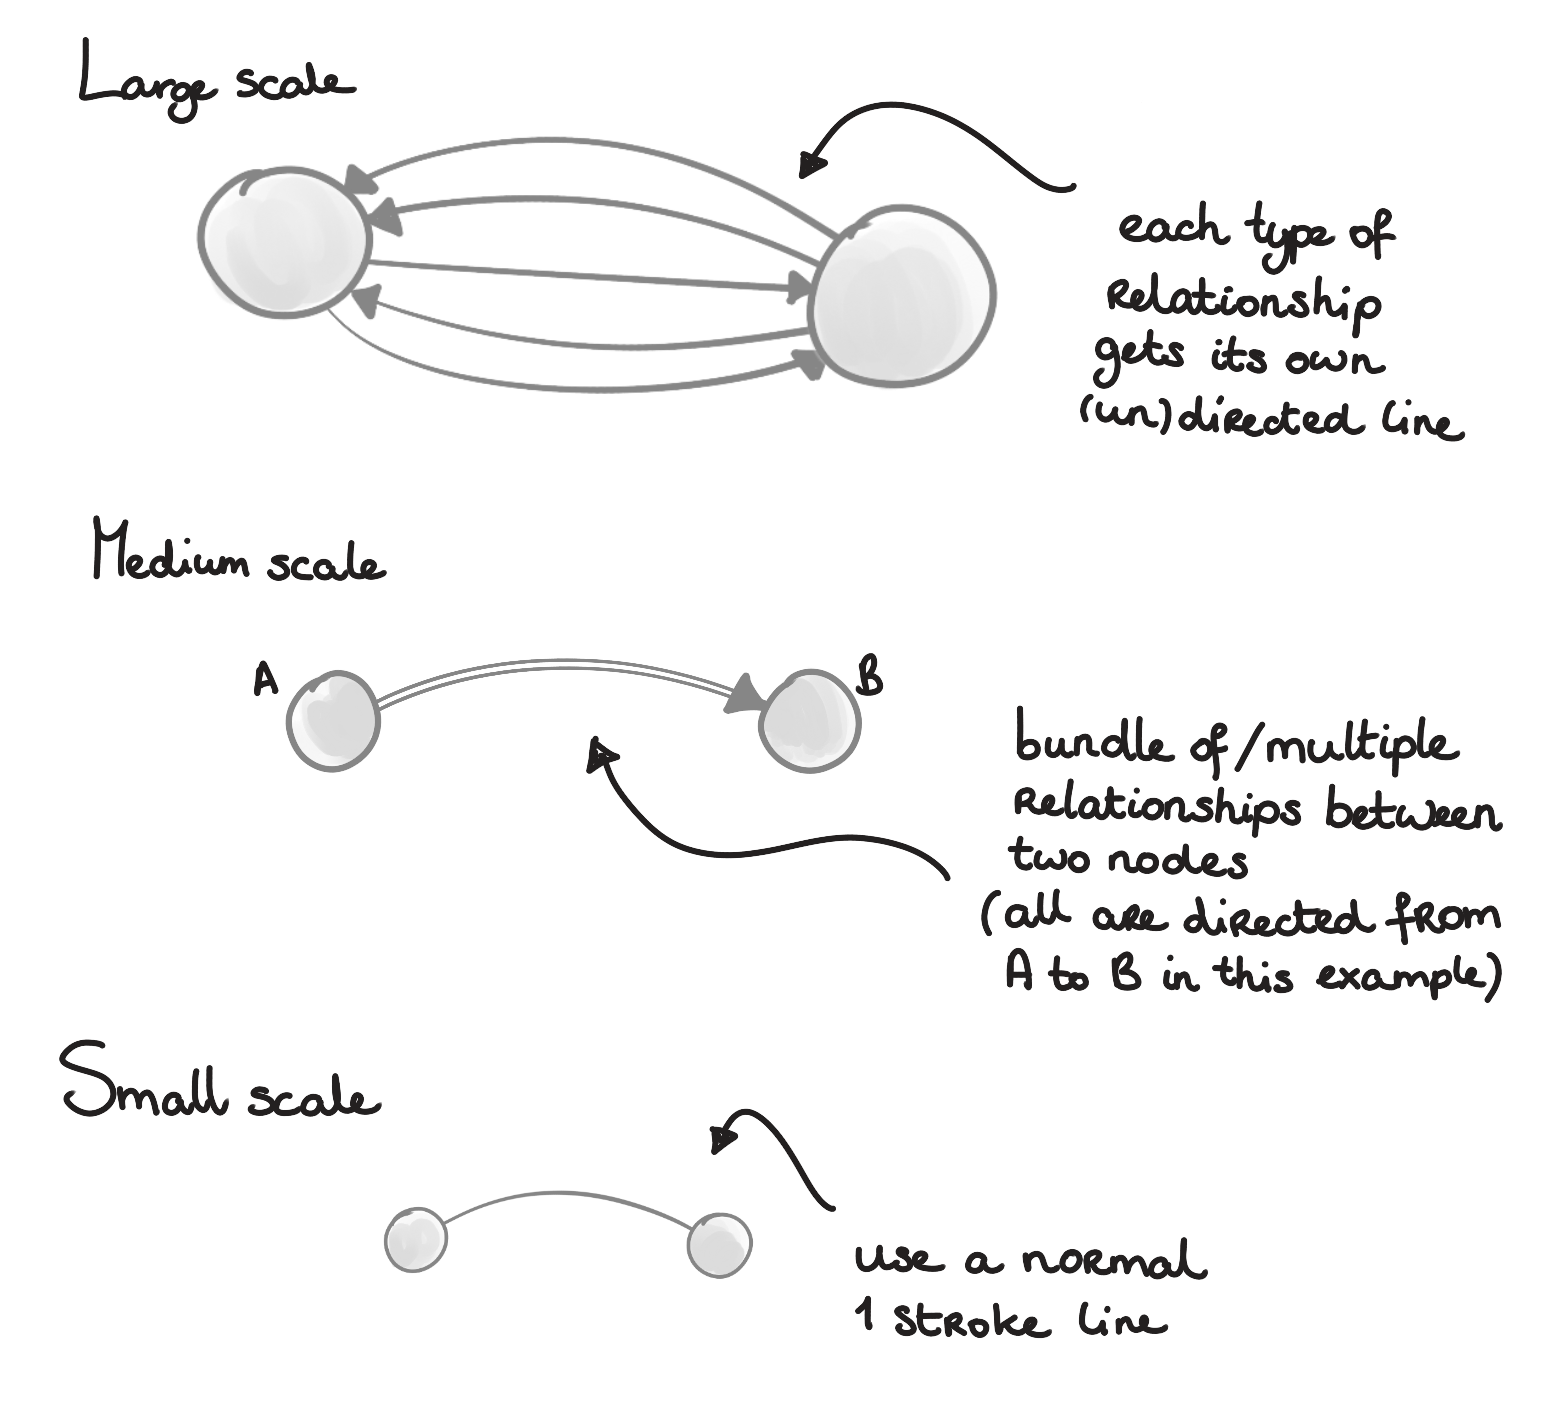 Large scale
each type of
relationship
gets its own
(un)directed line
Medium scale
A
B
bundle of/multiple
relationships between
two nodes
(all are directed from
A to B in this example)
Small scale
use a normal
1 stroke line